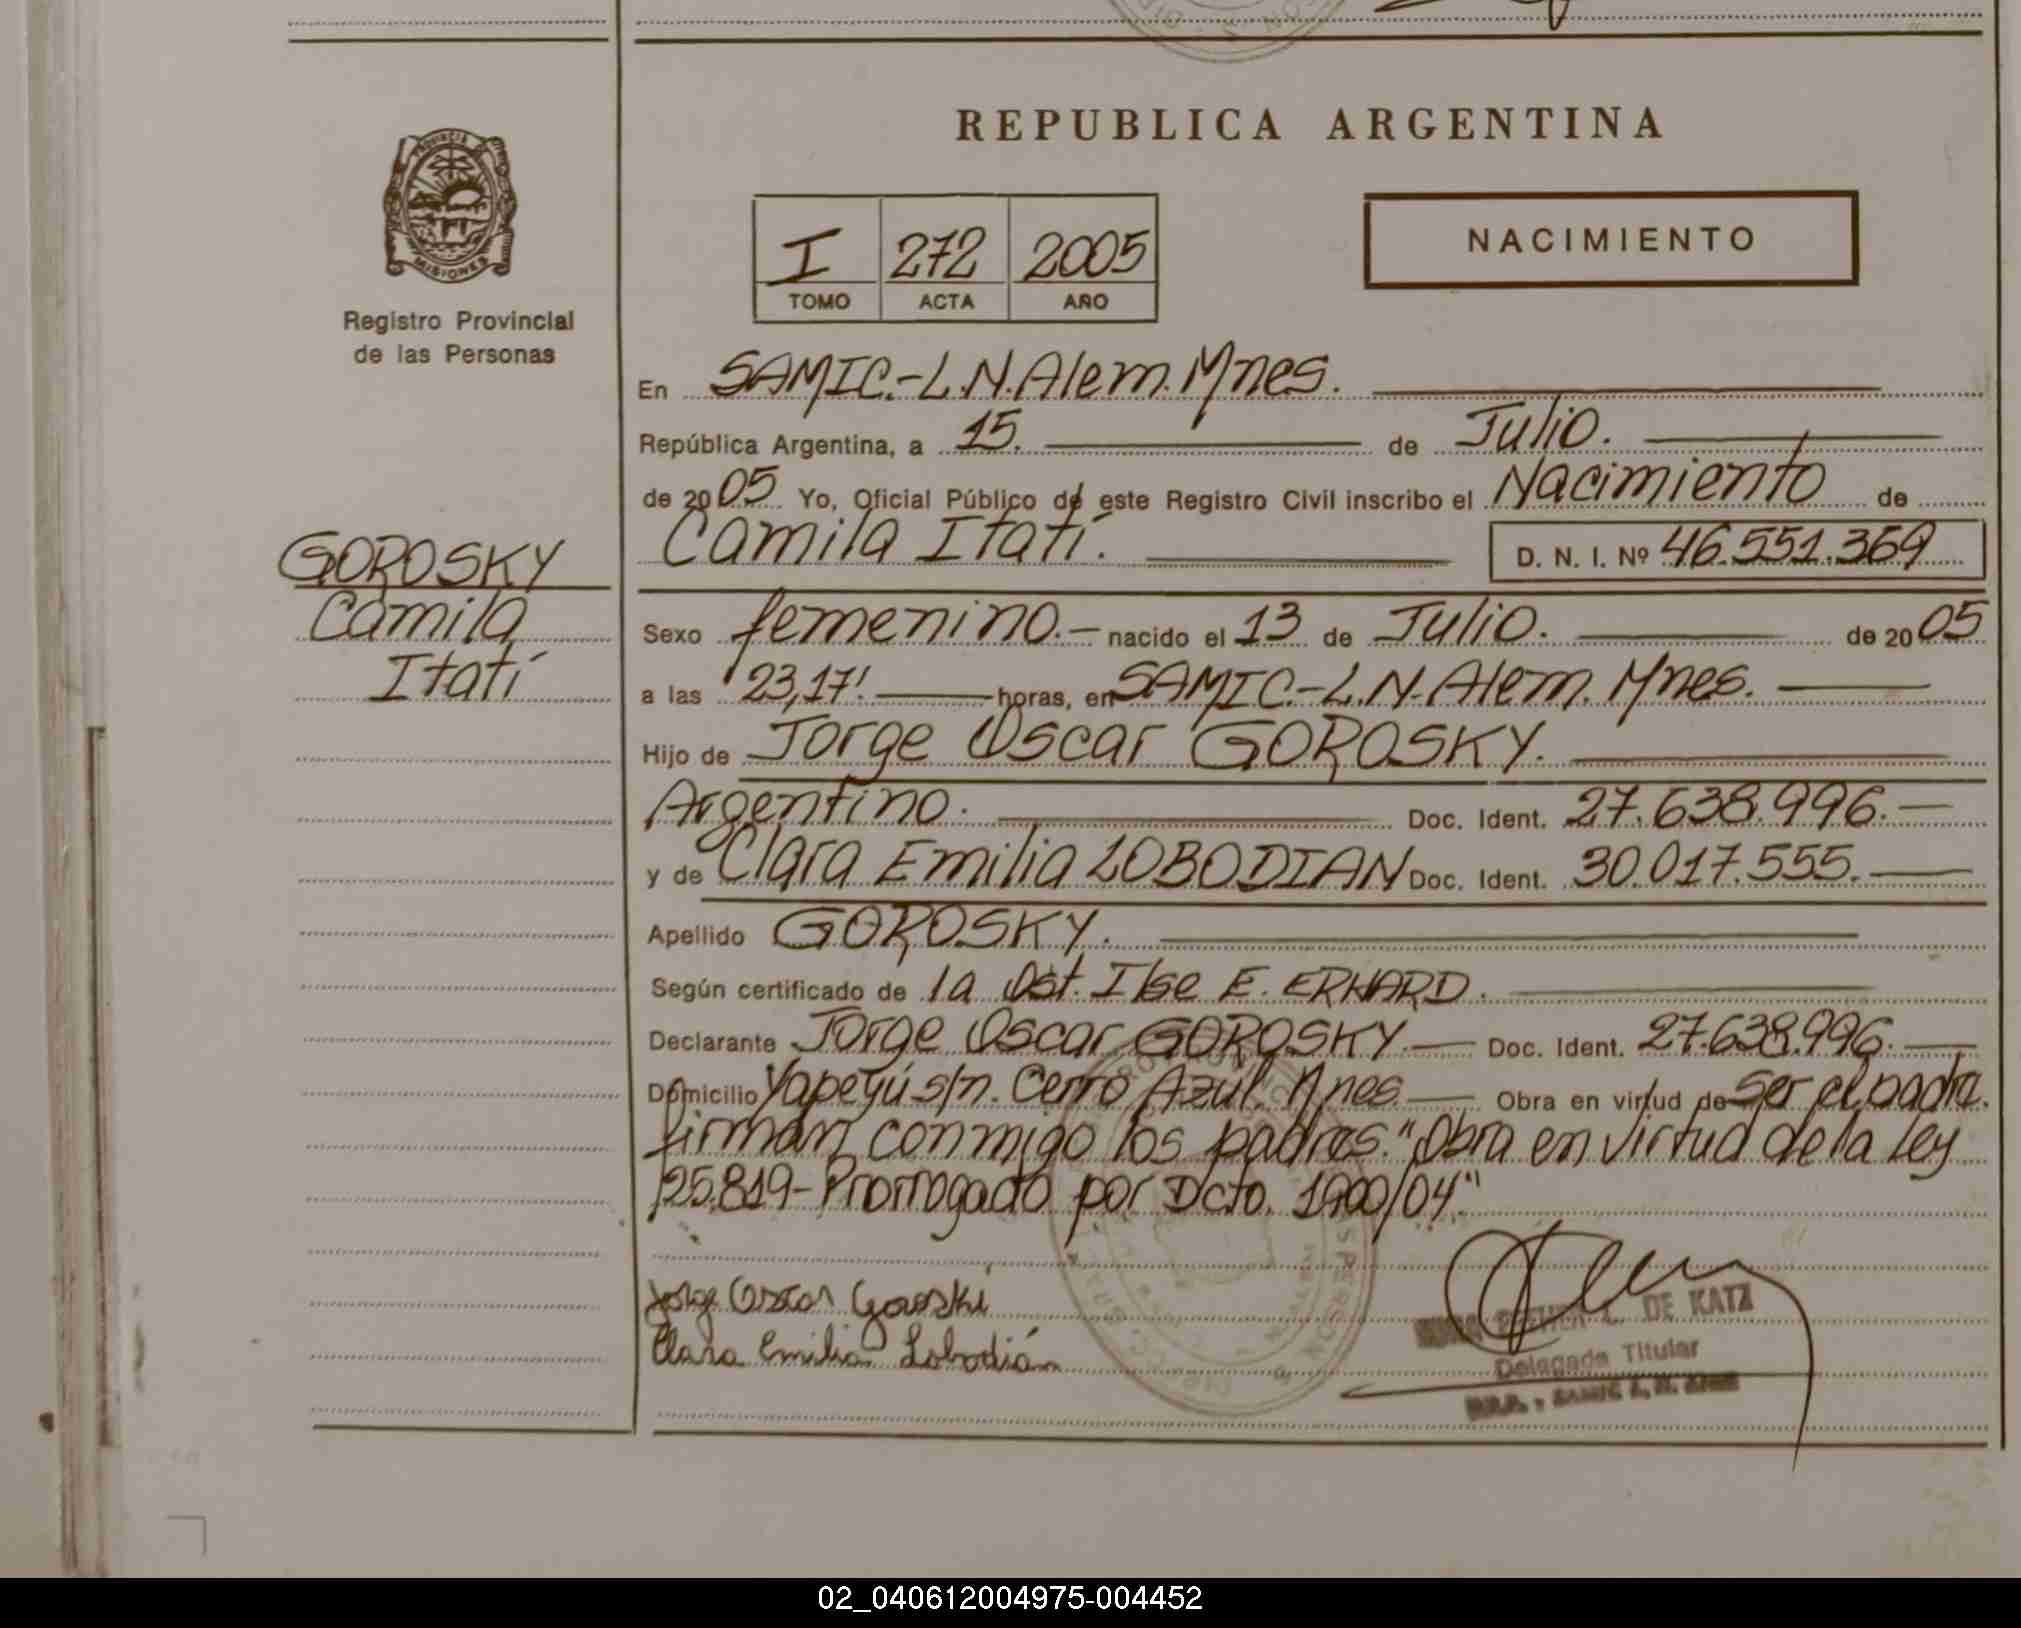 REPUBLICA ARGENTINA
PROVINCIA DE
MISIONES
Registro Provincial
de las Personas
I 272 2005
TOMO ACTA AÑO
NACIMIENTO
En SAMIC.-L.N.Alem.Mnes.
República Argentina, a 15. de Julio.
de 2005 Yo, Oficial Público de este Registro Civil inscribo el Nacimiento de
Camila Itatí.
D. N. I. Nº 46.551.369
GOROSKY
Camila
Itatí
Sexo femenino.- nacido el 13 de Julio. de 2005
a las 23,17! horas, en SAMIC.-L.N.Alem. Mnes.
Hijo de Jorge Oscar GOROSKY.
Argentino. Doc. Ident. 27.638.996.-
y de Clara Emilia LOBODIAN Doc. Ident. 30.017.555.
Apellido GOROSKY.
Según certificado de la Ost. Ilse E. ERHARD.
Declarante Jorge Oscar GOROSKY.- Doc. Ident. 27.638.996.-
Domicilio Yapeyú s/n. Cerro Azul. Mnes.- Obra en virtud de Ser el padre.
firman conmigo los padres. "Obra en virtud de la Ley
25.819-Prorrogado por Dcto. 1900/04"
Jorge Oscar Goroski
Clara Emilia Lobodián
DE KATZ
Delegada Titular
SAMIC L. N. ALEM
02_040612004975-004452